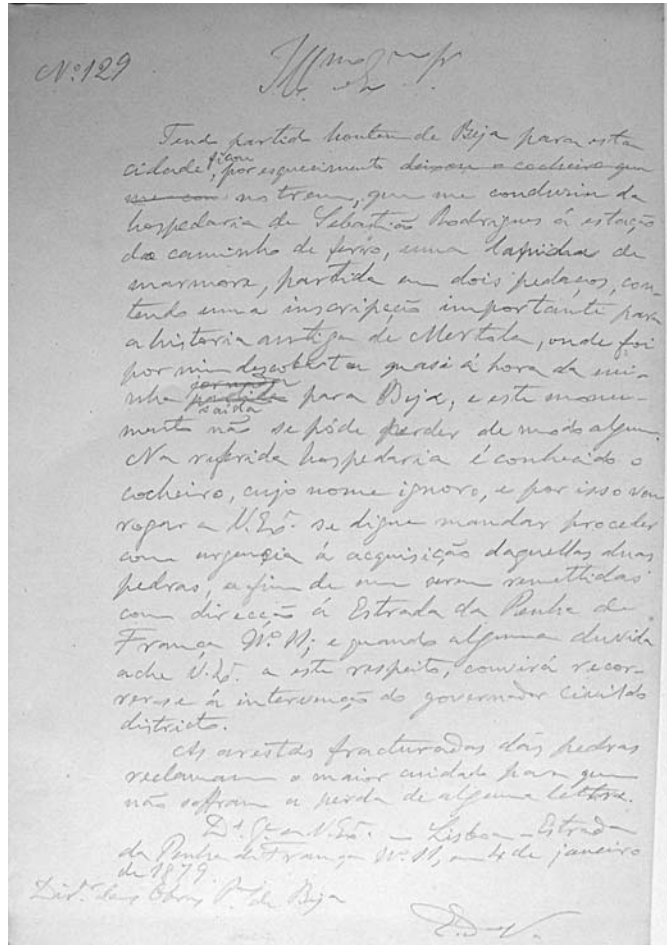 Nº 129 Illmo e Exmo Sr
Tendo partido hontem de Beja para esta
cidade, ficou por esquecimento deixou o cocheiro que
no trem, que me conduziu da
hospedaria de Sebastião Rodrigues á estação
do caminho de ferro, uma lapida de
marmore, partida em dois pedaços, con-
tendo uma inscripção importante para
a historia antiga de Mertola, onde foi
por mim descoberta quasi á hora da mi-
nha jornada partida saida para Beja, e este monu-
mento não se póde perder de modo algum.
Na referida hospedaria é conhecido o
cocheiro, cujo nome ignoro, e por isso vou
rogar a V. Exª. se digne mandar proceder
com urgencia á acquisição daquellas duas
pedras, a fim de me serem remettidas
com direcção á Estrada da Penha de
França Nº 11; e quando alguma duvida
ache V. Exª. a este respeito, convirá recor-
rer-se á intervenção do governador civil do
districto.
As arestas fracturadas das pedras
reclamam o maior cuidado para que
não soffram a perda de alguma lettra.
Ds. Ge. a V. Exª. — Lisboa — Estrada
da Penha de França Nº 11, em 4 de janeiro
de 1879.
Dirˣ. das Obras Pᵃˢ. de Beja
E. da V.